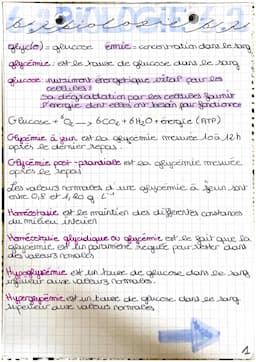 glyc(o) = glucose émie = concentration dans le sang
glycémie : est le taux de glucose dans le sang
glucose : nutriment énergétique vital pour les cellules !
Sa dégradation par les cellules fournit
l'énergie dont elles ont besoin pour fonctionner
Glucose + 6O2 → 6CO2 + 6H2O + énergie (ATP)
Glycémie à jeun est la glycémie mesurée 10 à 12h
après le dernier repas.
Glycémie post-prandiale est la glycémie mesurée
après le repas
Les valeurs normales d'une glycémie à jeun sont
entre 0,8 et 1,20 g.L-1
Homéostasie est le maintien des différentes constantes
du milieu intérieur
Homéostasie glucidique ou glycémie est le fait que la
glycémie est un paramètre régulé pour rester dans
des valeurs normales
Hypoglycémie est un taux de glucose dans le sang
inférieur aux valeurs normales.
Hyperglycémie est un taux de glucose dans le sang
supérieur aux valeurs normales
1